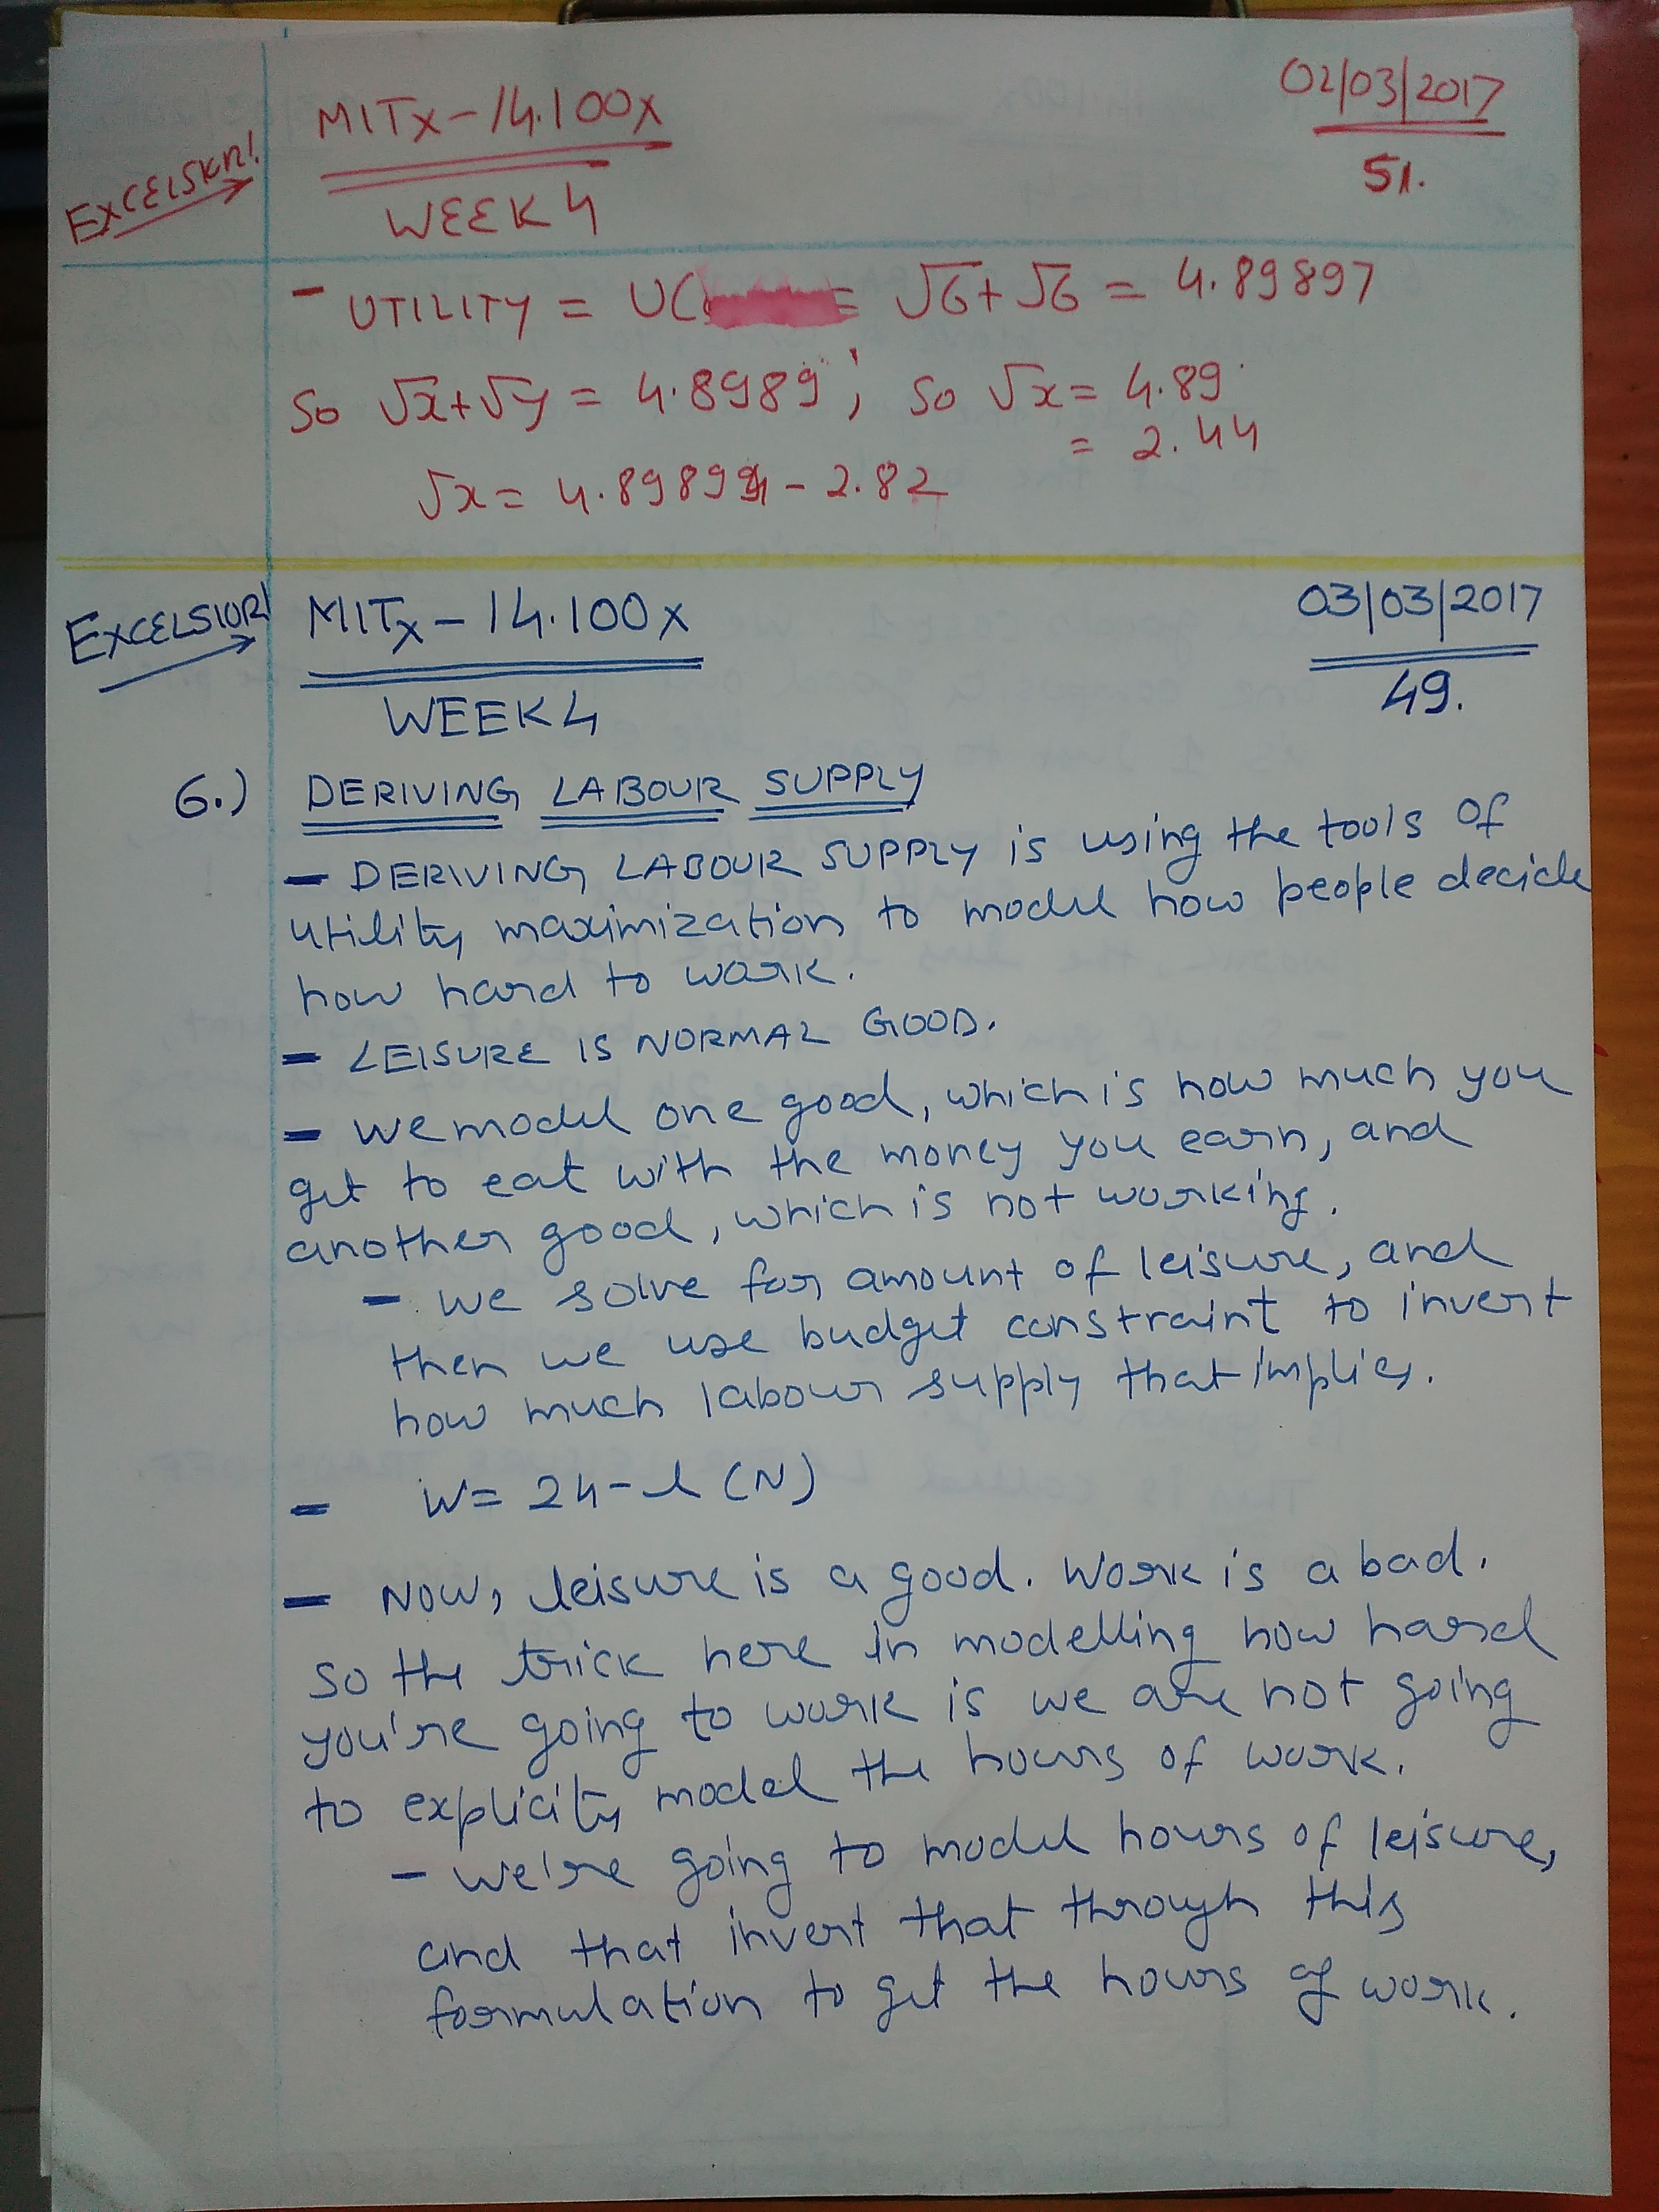 EXCELSIOR!
MITx-14.100x
02/03/2017
WEEK 4
51.
- UTILITY = U( = √6+√6 = 4.89897
So √x+√y = 4.8989; So √x = 4.89
= 2.44
√x = 4.8989 - 2.82
EXCELSIOR!
MITx-14.100x
03/03/2017
WEEK 4
49.
6.) DERIVING LABOUR SUPPLY
- DERIVING LABOUR SUPPLY is using the tools of
utility maximization to model how people decide
how hard to work.
- LEISURE IS NORMAL GOOD.
- We model one good, which is how much you
get to eat with the money you earn, and
another good, which is not working.
- We solve for amount of leisure, and
then we use budget constraint to invert
how much labour supply that implies.
- W= 24-l (N)
- NOW, leisure is a good. Work is a bad.
So the trick here in modelling how hard
you're going to work is we are not going
to explicity model the hours of work.
- We're going to model hours of leisure,
and that invert that through this
formulation to get the hours of work.